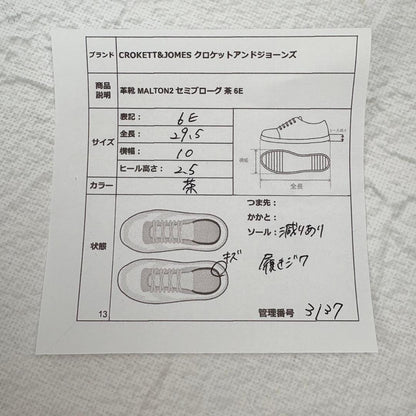 ブランド CROKETT&JOMES クロケットアンドジョーンズ
商品説明 革靴 MALTON2 セミブローグ 茶 6E
サイズ
表記： 6E
全長： 29.5
横幅： 10
ヒール高さ： 2.5
ヒール高さ
横幅
全長
カラー 茶
状態
つま先：
かかと：
ソール：減りあり
キズ
履きジワ
13
管理番号 3137